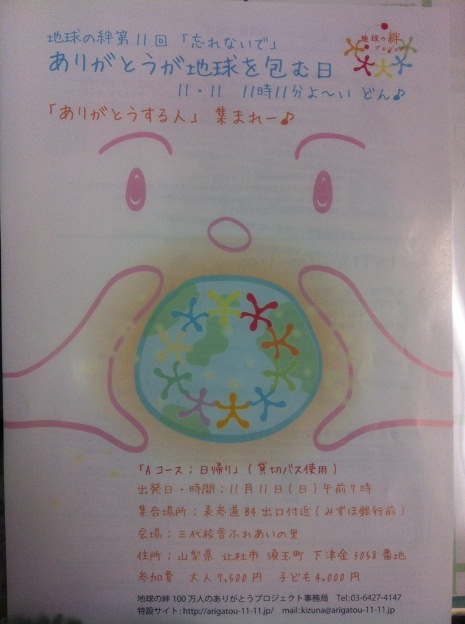 地球の絆第11回「忘れないで」
ありがとうが地球を包む日
11・11 11時11分よ〜い どん♪
「ありがとうする人」集まれー♪
地球の絆
プロジェクト
「Aコース：日帰り」(貸切バス使用)
出発日・時間：11月11日(日)午前7時
集合場所：表参道B4出口付近(みずほ銀行前)
会場：三代校舎ふれあいの里
住所：山梨県 北杜市 須玉町 下津金3058番地
参加費 大人7,500円 子ども4,000円
地球の絆100万人のありがとうプロジェクト事務局 Tel:03-6427-4147
特設サイト:http://arigatou-11-11.jp/ mail:kizuna@arigatou-11-11.jp